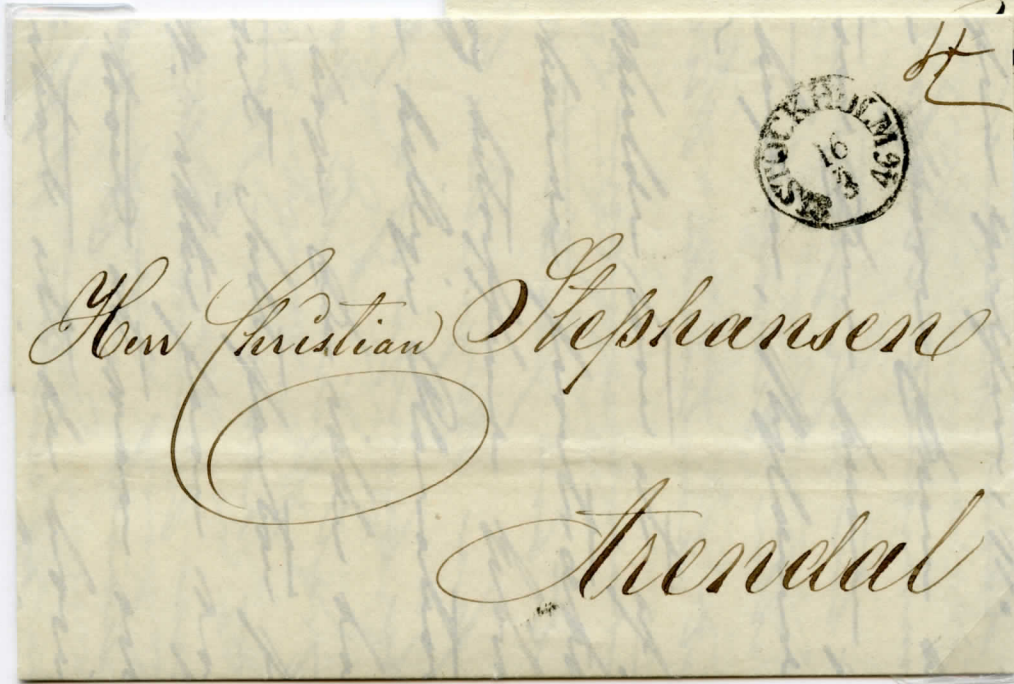 STOCKHOLM
16
3
Herr Christian Stephansen
Arendal